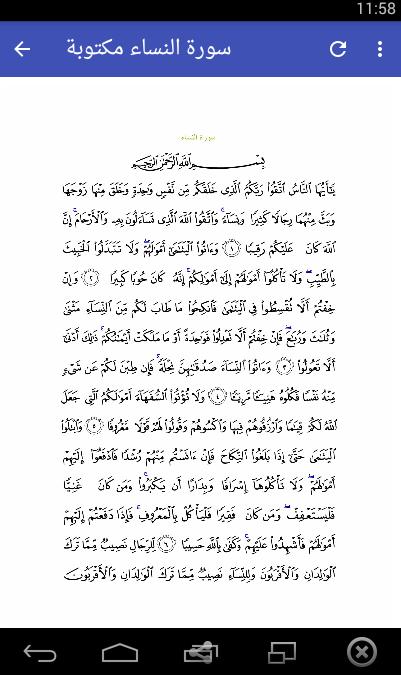 11:58
سورة النساء مكتوبة
سورة النساء
بِسْمِ اللَّهِ الرَّحْمَٰنِ الرَّحِيمِ
يَٰٓأَيُّهَا النَّاسُ اتَّقُوا۟ رَبَّكُمُ الَّذِى خَلَقَكُم مِّن نَّفْسٍ وَٰحِدَةٍ وَخَلَقَ مِنْهَا زَوْجَهَا
وَبَثَّ مِنْهُمَا رِجَالًا كَثِيرًا وَنِسَآءً ۚ وَاتَّقُوا۟ اللَّهَ الَّذِى تَسَآءَلُونَ بِهِۦ وَالْأَرْحَامَ ۚ إِنَّ
اللَّهَ كَانَ عَلَيْكُمْ رَقِيبًا ﴿١﴾ وَءَاتُوا۟ الْيَتَٰمَىٰٓ أَمْوَٰلَهُمْ ۖ وَلَا تَتَبَدَّلُوا۟ الْخَبِيثَ
بِالطَّيِّبِ ۖ وَلَا تَأْكُلُوٓا۟ أَمْوَٰلَهُمْ إِلَىٰٓ أَمْوَٰلِكُمْ ۚ إِنَّهُۥ كَانَ حُوبًا كَبِيرًا ﴿٢﴾ وَإِنْ
خِفْتُمْ أَلَّا تُقْسِطُوا۟ فِى الْيَتَٰمَىٰ فَانكِحُوا۟ مَا طَابَ لَكُم مِّنَ النِّسَآءِ مَثْنَىٰ
وَثُلَٰثَ وَرُبَٰعَ ۖ فَإِنْ خِفْتُمْ أَلَّا تَعْدِلُوا۟ فَوَٰحِدَةً أَوْ مَا مَلَكَتْ أَيْمَٰنُكُمْ ۚ ذَٰلِكَ أَدْنَىٰٓ
أَلَّا تَعُولُوا۟ ﴿٣﴾ وَءَاتُوا۟ النِّسَآءَ صَدُقَٰتِهِنَّ نِحْلَةً ۚ فَإِن طِبْنَ لَكُمْ عَن شَىْءٍ
مِّنْهُ نَفْسًا فَكُلُوهُ هَنِيٓـًٔا مَّرِيٓـًٔا ﴿٤﴾ وَلَا تُؤْتُوا۟ السُّفَهَآءَ أَمْوَٰلَكُمُ الَّتِى جَعَلَ
اللَّهُ لَكُمْ قِيَٰمًا وَارْزُقُوهُمْ فِيهَا وَاكْسُوهُمْ وَقُولُوا۟ لَهُمْ قَوْلًا مَّعْرُوفًا ﴿٥﴾ وَابْتَلُوا۟
الْيَتَٰمَىٰ حَتَّىٰٓ إِذَا بَلَغُوا۟ النِّكَاحَ فَإِنْ ءَانَسْتُم مِّنْهُمْ رُشْدًا فَادْفَعُوٓا۟ إِلَيْهِمْ
أَمْوَٰلَهُمْ ۖ وَلَا تَأْكُلُوهَآ إِسْرَافًا وَبِدَارًا أَن يَكْبَرُوا۟ ۚ وَمَن كَانَ غَنِيًّا
فَلْيَسْتَعْفِفْ ۖ وَمَن كَانَ فَقِيرًا فَلْيَأْكُلْ بِالْمَعْرُوفِ ۚ فَإِذَا دَفَعْتُمْ إِلَيْهِمْ
أَمْوَٰلَهُمْ فَأَشْهِدُوا۟ عَلَيْهِمْ ۚ وَكَفَىٰ بِاللَّهِ حَسِيبًا ﴿٦﴾ لِّلرِّجَالِ نَصِيبٌ مِّمَّا تَرَكَ
الْوَٰلِدَانِ وَالْأَقْرَبُونَ وَلِلنِّسَآءِ نَصِيبٌ مِّمَّا تَرَكَ الْوَٰلِدَانِ وَالْأَقْرَبُونَ